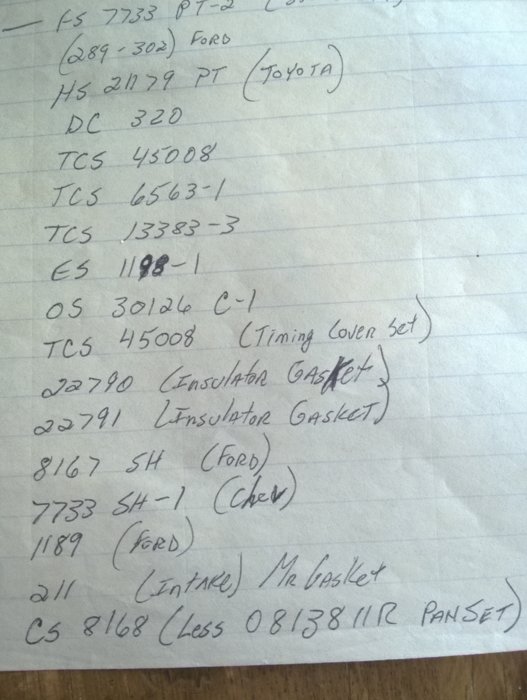 — FS 7733 PT-2
(289-302) FORD
HS 21179 PT (TOYOTA)
DC 320
TCS 45008
TCS 6563-1
TCS 13383-3
ES 1198-1
OS 30126 C-1
TCS 45008 (Timing Cover Set)
22790 (INSULATOR GASKet)
22791 (INSULATOR GASKET)
8167 SH (FORD)
7733 SH-1 (Chev)
1189 (FORD)
211 (INtAKE) MR GASKET
CS 8168 (Less 0813811R PAN SET)